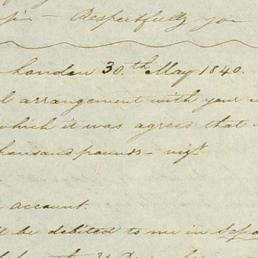 Sir — Respectfully you
London 30.th May 1840.
l arrangement with your
which it was agreed that
thousand pounds —
account.
ll be debited to me in